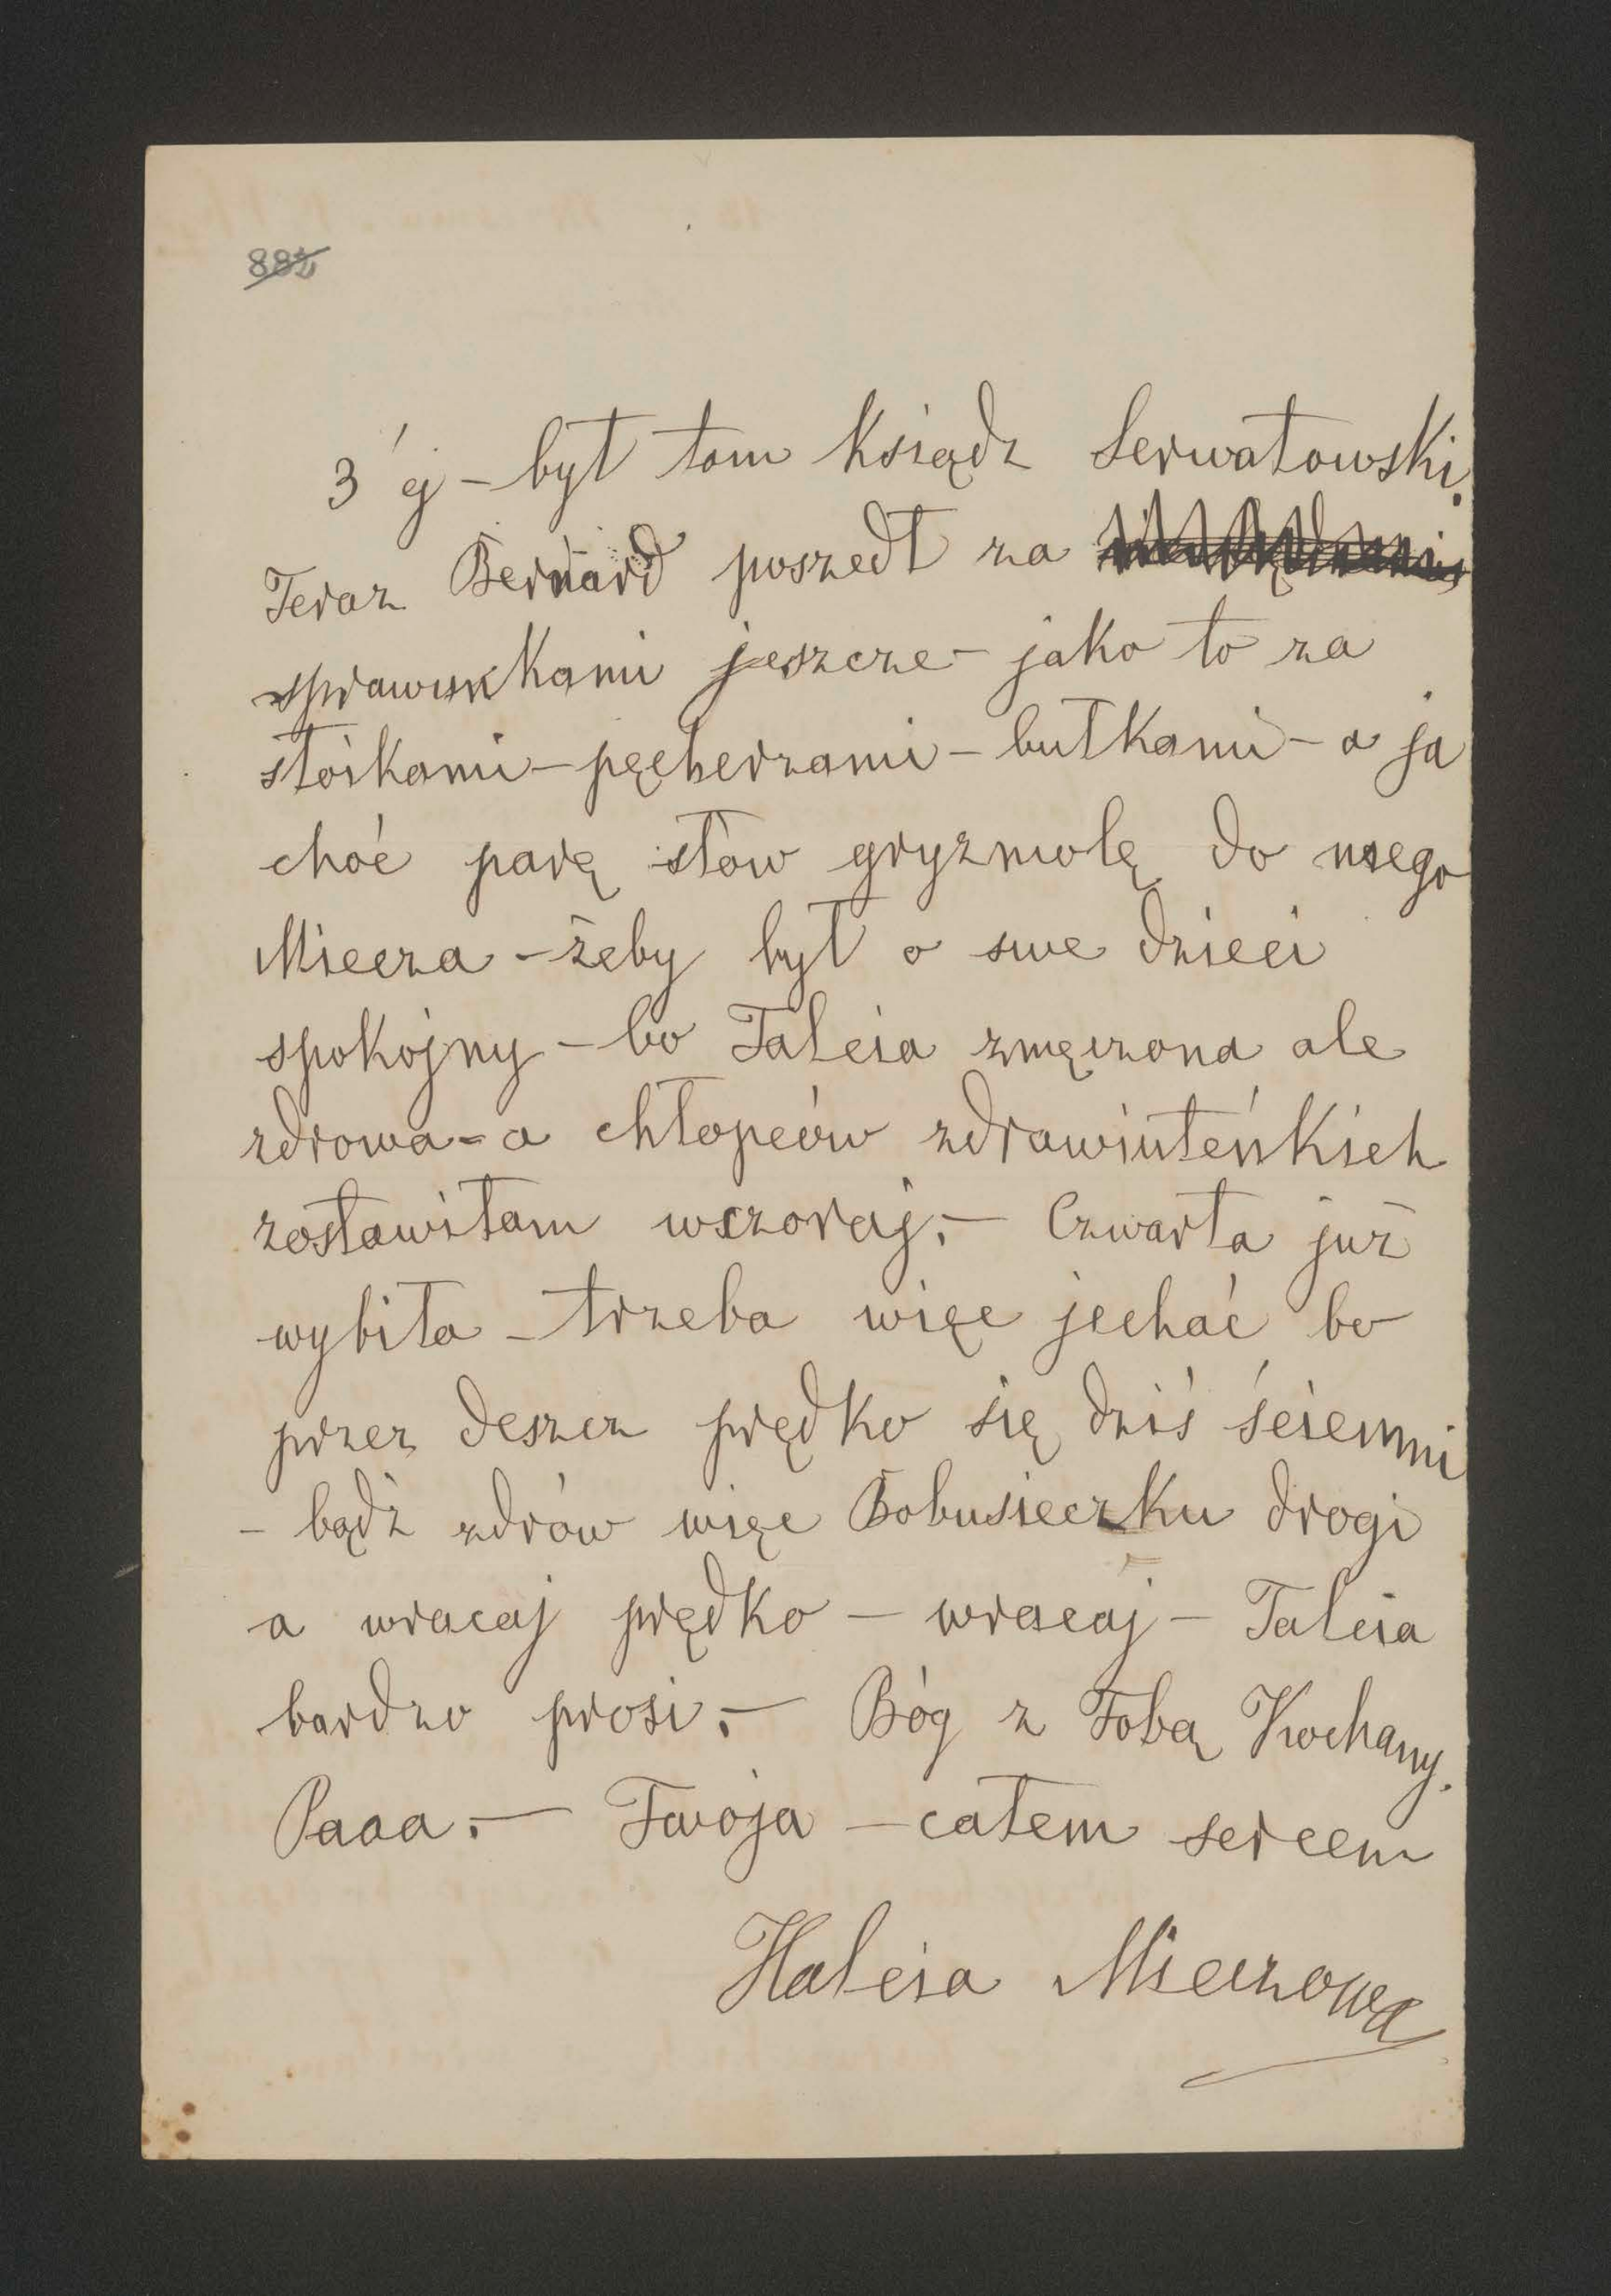 882
3ej – był tam Ksiądz Serwatowski.
Teraz Bernard poszedł za
sprawunkami jeszcze – jako to za
słoikami – pęcherzami – bułkami – a ja
choć parę słów gryzmolę do mego
Miecza – żeby był o swe dzieci
spokojny – bo Talcia zmęczona ale
zdrowa – a chłopców zdrawiuteńkich
zostawiłam wczoraj. – Czwarta już
wybiła – trzeba więc jechać bo
przez deszcz prędko się dziś ściemni
– bądź zdrów więc Bobusieczku drogi
a wracaj prędko – wracaj – Talcia
bardzo prosi. – Bóg z Tobą Kochany.
Paaa. – Twoja – całem sercem
Halcia Mieczowa